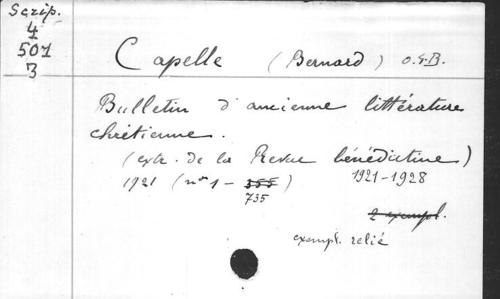 Scrip.
4
501
3
Capelle (Bernard) O.S.B.
Bulletin d'ancienne littérature
chrétienne.
(extr. de la Revue bénédictine)
1921 (nos 1 - 355) 1921-1928
735
2 exempl.
exempl. relié